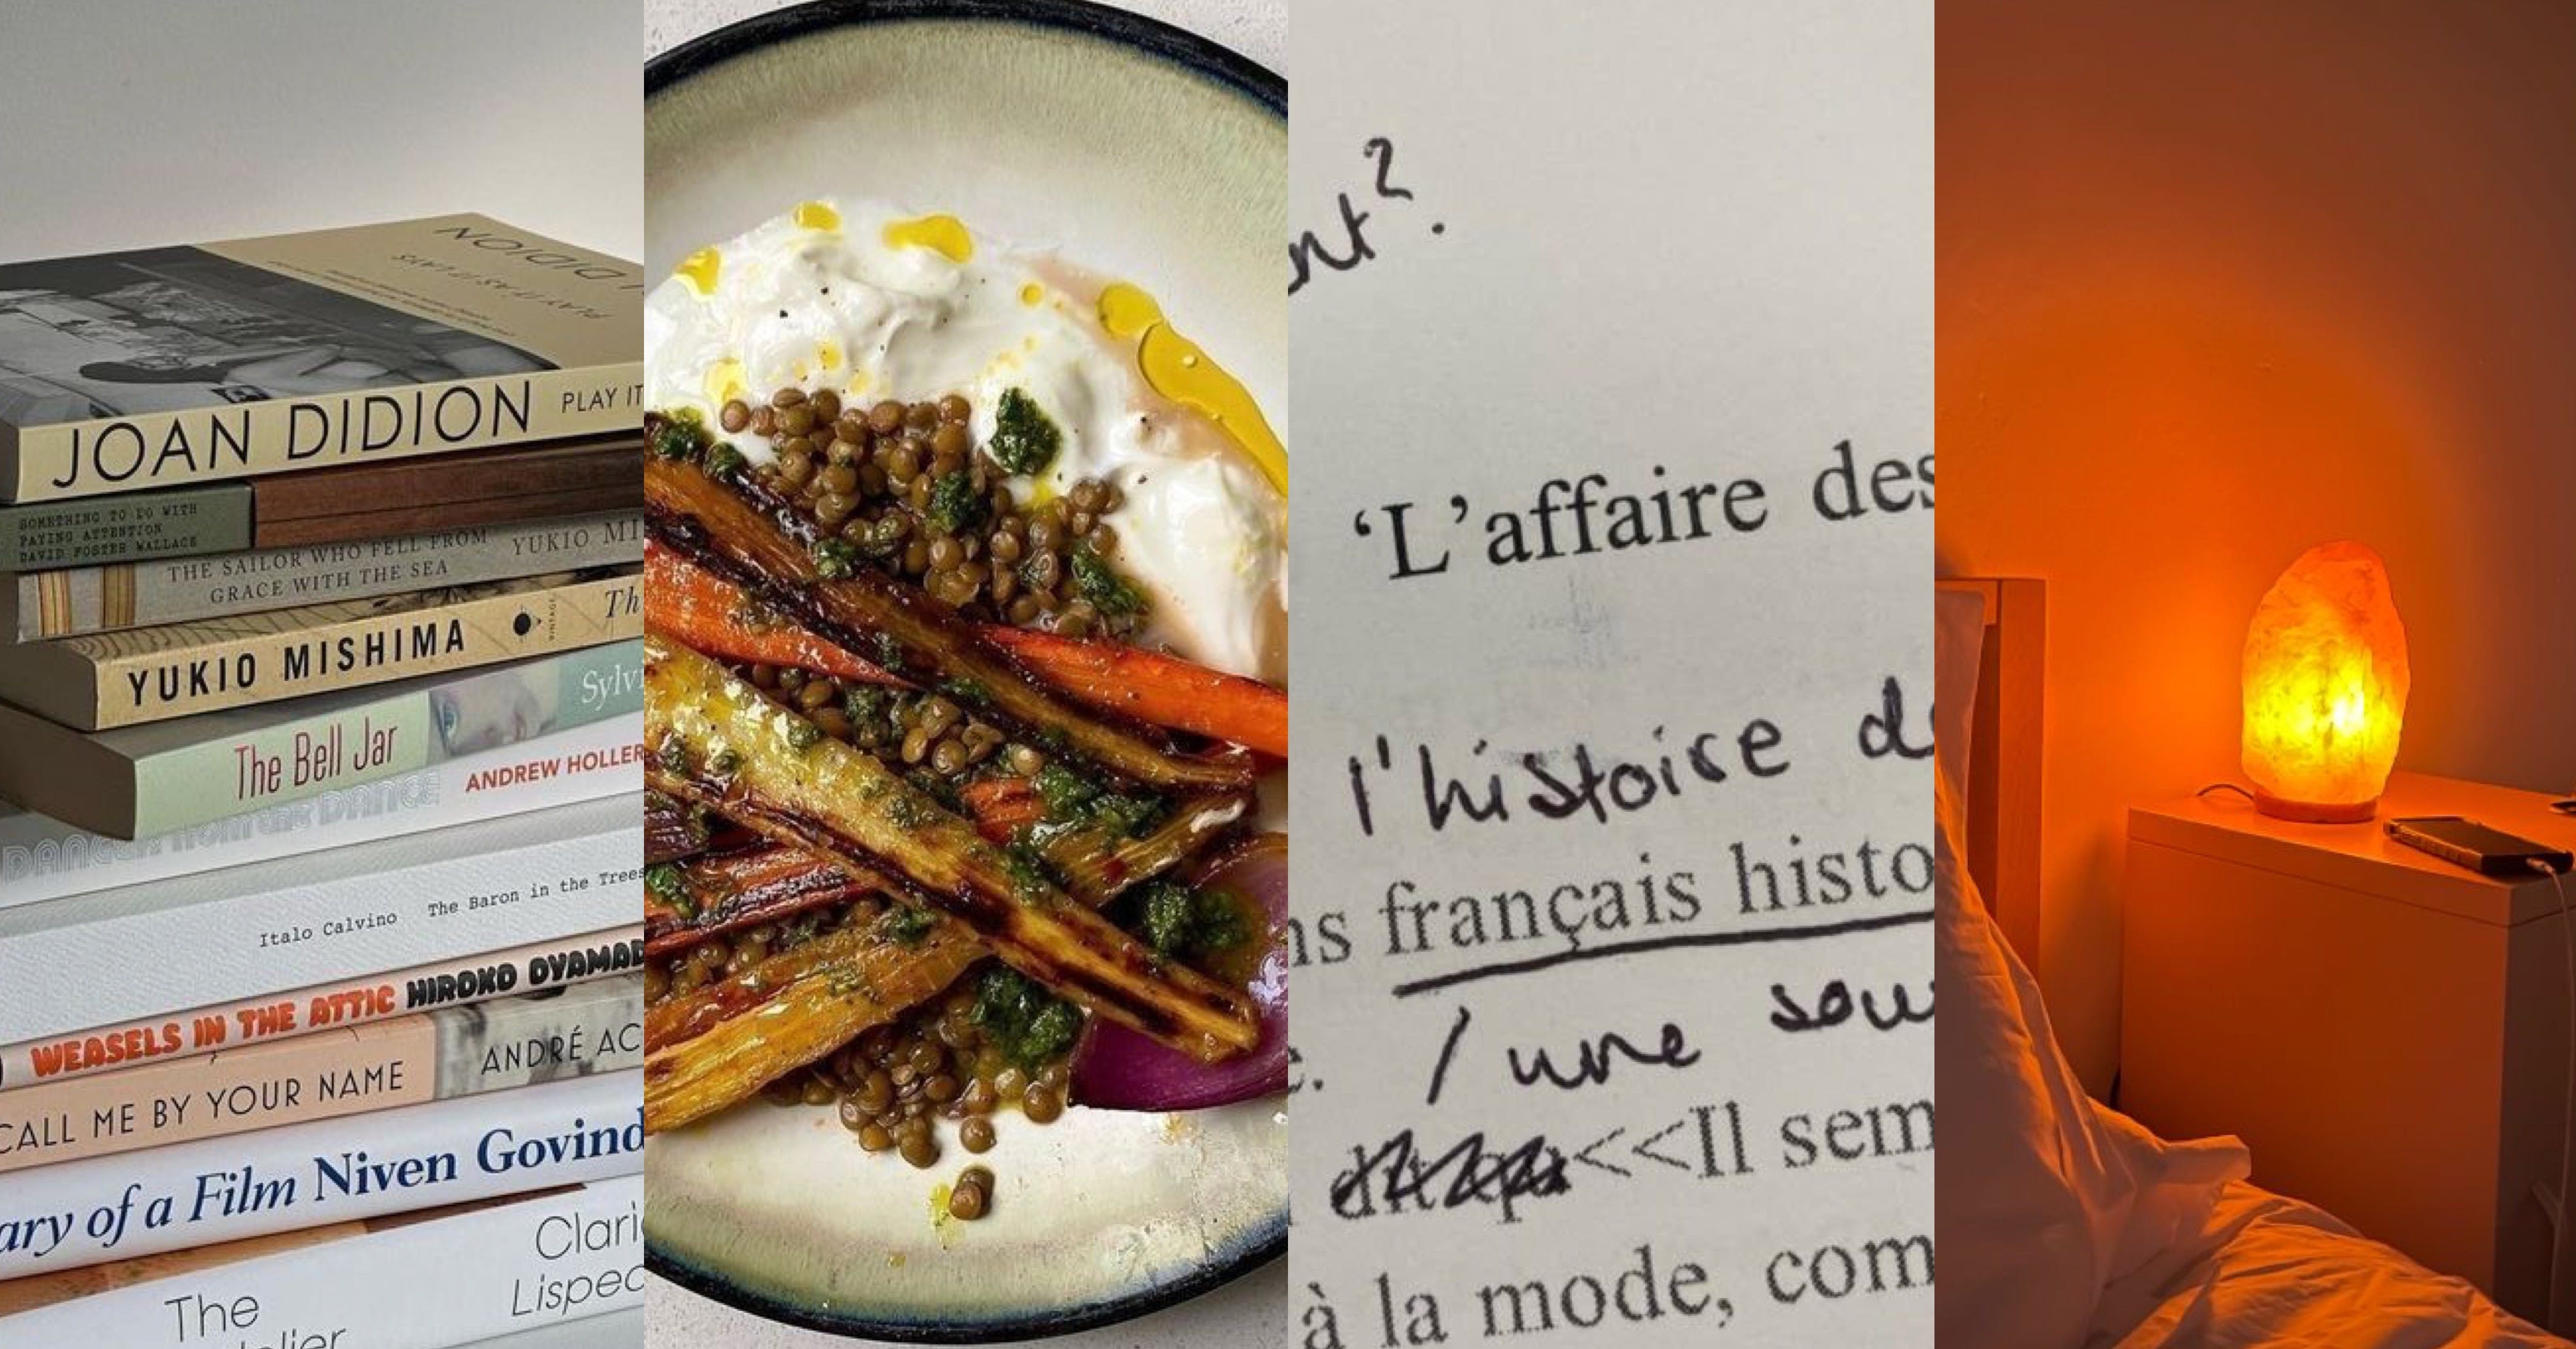 JOAN DIDION
PLAY IT AS IT LAYS
JOAN DIDION PLAY IT
SOMETHING TO DO WITH
PAYING ATTENTION
DAVID FOSTER WALLACE
THE SAILOR WHO FELL FROM
GRACE WITH THE SEA
YUKIO MI
YUKIO MISHIMA VINTAGE Th
The Bell Jar Sylvi
DANCER FROM THE DANCE ANDREW HOLLER
Italo Calvino The Baron in the Trees
WEASELS IN THE ATTIC HIROKO OYAMAD
CALL ME BY YOUR NAME ANDRÉ AC
ary of a Film Niven Govind
The
Clari
Lispec
nt?.
‘L’affaire des
l'histoire d
ns français histo
. / une sou
<<Il sem
à la mode, com